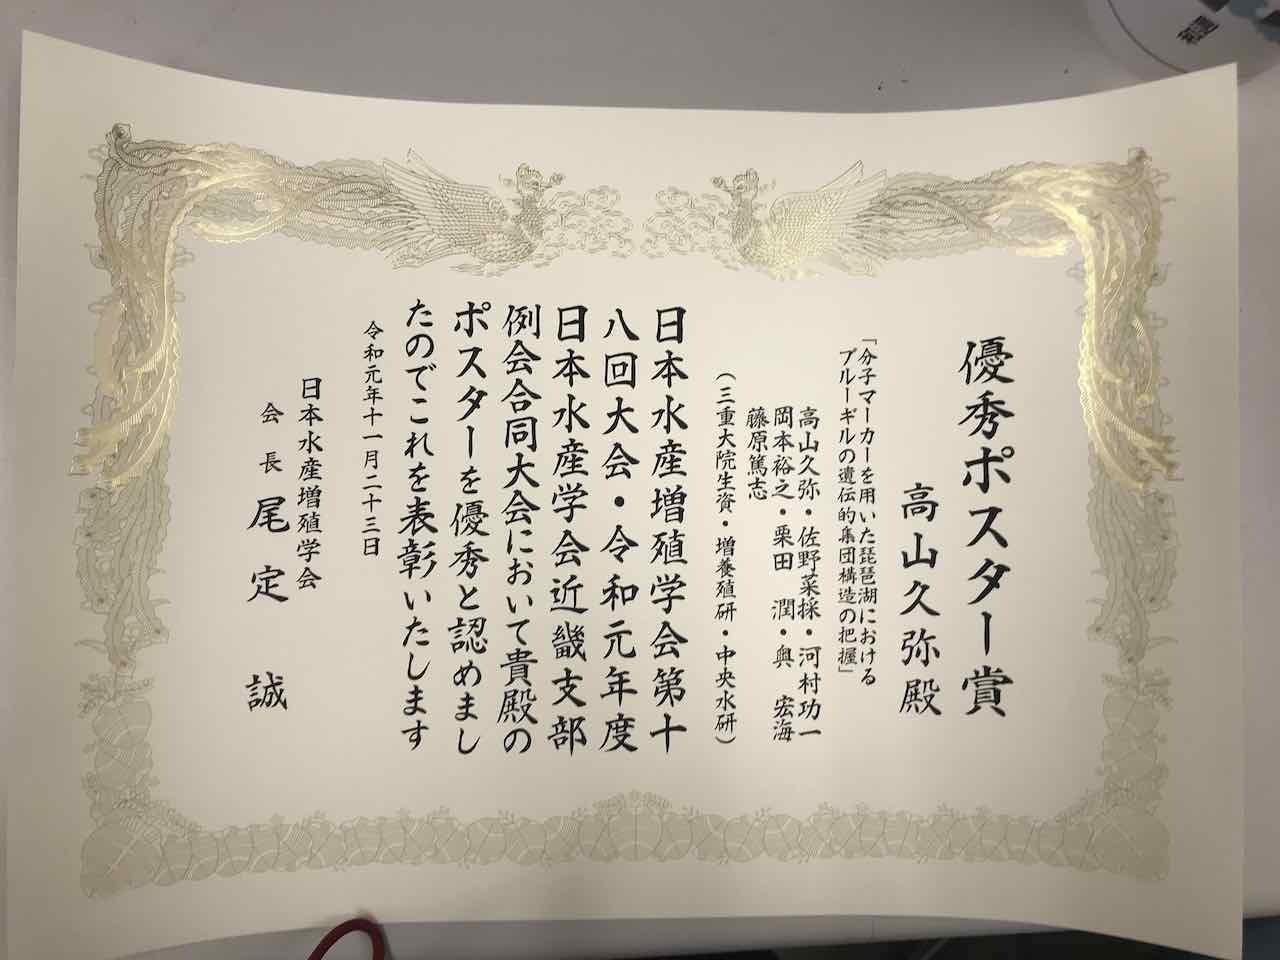 優秀ポスター賞
高山久弥殿
「分子マーカーを用いた琵琶湖における
ブルーギルの遺伝的集団構造の把握」
高山久弥・佐野菜採・河村功一
岡本裕之・栗田　潤・奥　宏海
藤原篤志
（三重大院生資・増養殖研・中央水研）
日本水産増殖学会第十
八回大会・令和元年度
日本水産学会近畿支部
例会合同大会において貴殿の
ポスターを優秀と認めまし
たのでこれを表彰いたします
令和元年十一月二十三日
日本水産増殖学会
会長　尾定　誠